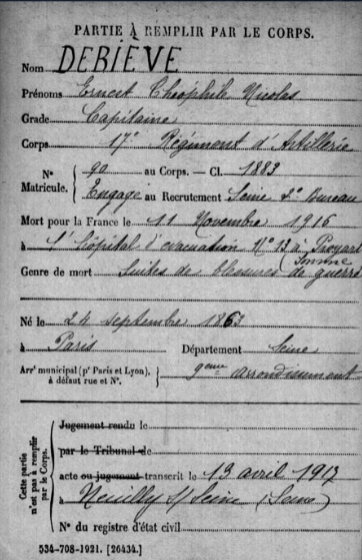 PARTIE À REMPLIR PAR LE CORPS.
Nom DEBIEVE
Prénoms Ernest Théophile Nicolas
Grade Capitaine
Corps 17e Régiment d'Artillerie
N° 90 au Corps. — Cl. 1883
Matricule. Engagé au Recrutement Seine 2e Bureau
Mort pour la France le 11 Novembre 1916
à l'hôpital d'évacuation N° 13 à Proyart
Somme
Genre de mort Suites de blessures de guerre
Né le 24 septembre 1863
à Paris Département Seine
Arrt municipal (pr Paris et Lyon), à défaut rue et N°. 9eme arrondissement
Cette partie n'est pas à remplir par le Corps.
Jugement rendu le
par le Tribunal de
acte ou jugement transcrit le 13 avril 1917
à Neuilly s/ Seine (Seine)
N° du registre d'état civil
534-708-1921. [26434.]